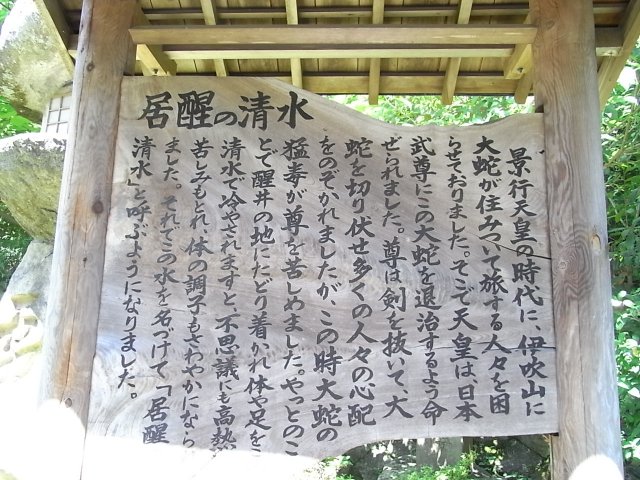 居醒の清水
景行天皇の時代に、伊吹山に
大蛇が住みついて旅する人々を困
らせておりました。そこで天皇は、日本
武尊にこの大蛇を退治するよう命
ぜられました。尊は剣を抜いて、大
蛇を切り伏せ多くの人々の心配
をのぞかれましたが、この時大蛇の
猛毒が尊を苦しめました。やっとのこ
とで醒井の地にたどり着かれ体や足をこ
清水で冷やされますと、不思議にも高熱
苦しみもとれ、体の調子もさわやかになら
ました。それでこの水を名づけて「居醒
清水」と呼ぶようになりました。